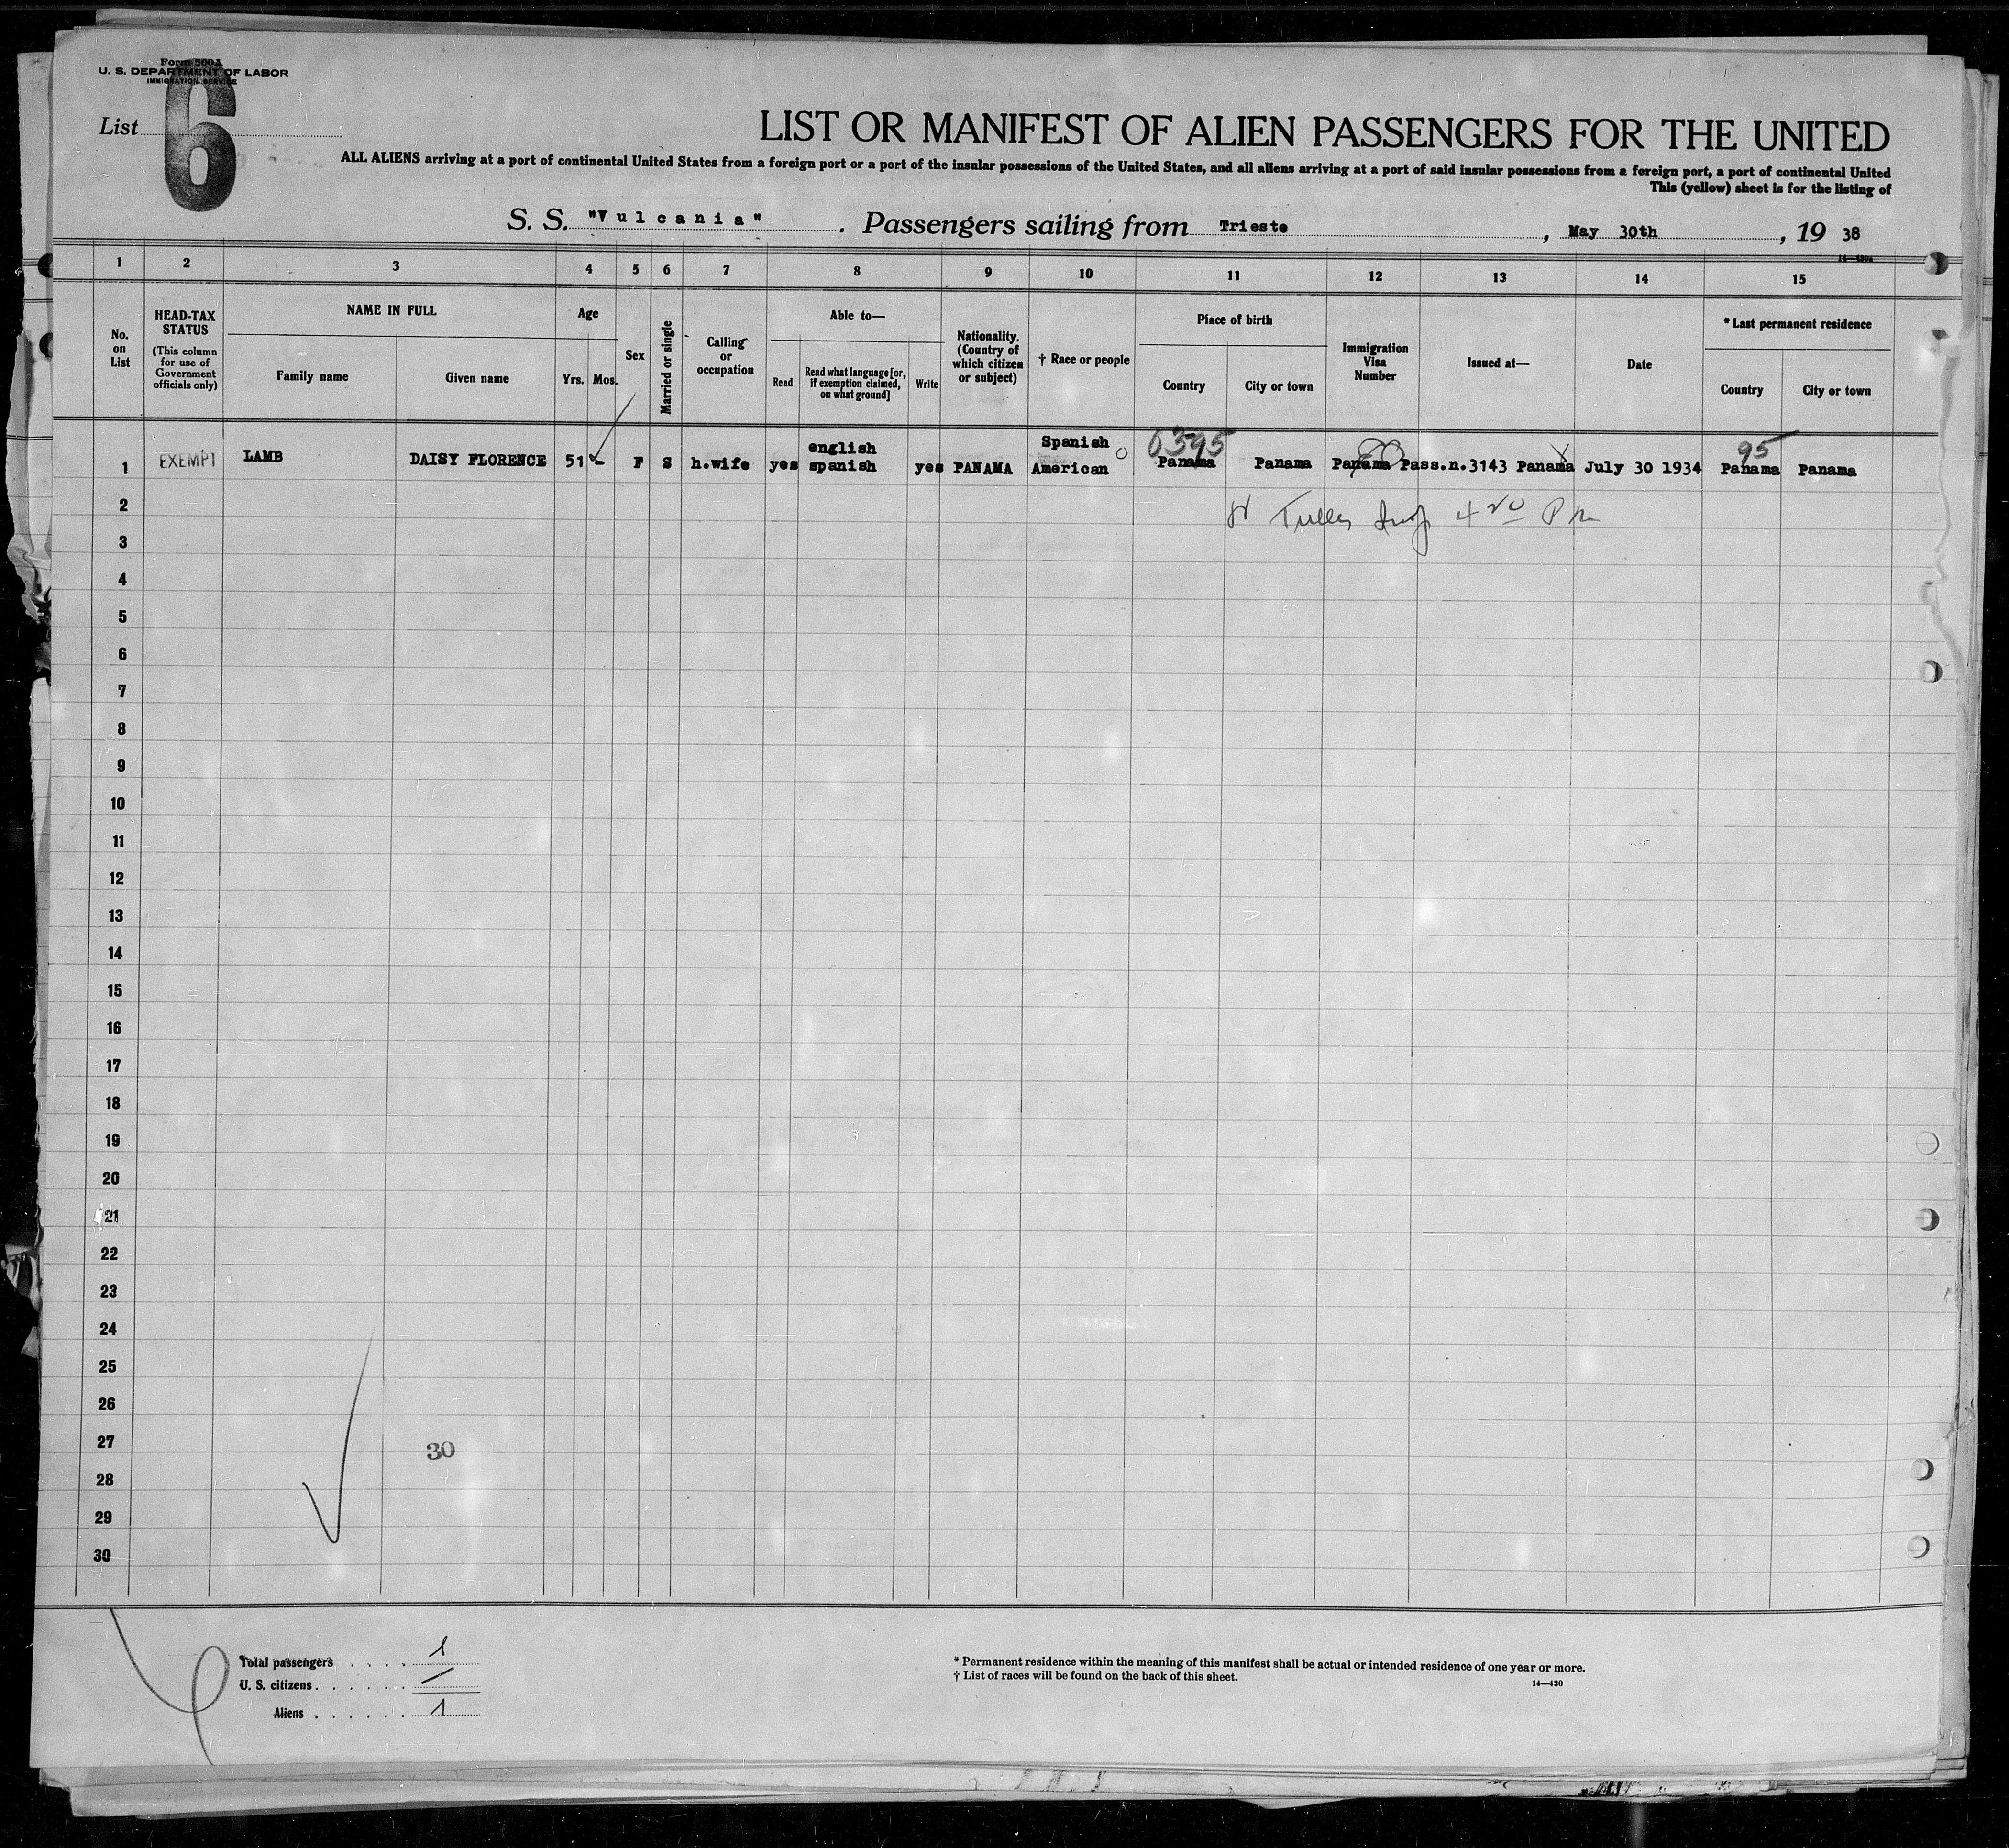 Form 500A
U. S. DEPARTMENT OF LABOR
IMMIGRATION SERVICE
List 6
LIST OR MANIFEST OF ALIEN PASSENGERS FOR THE UNITED
ALL ALIENS arriving at a port of continental United States from a foreign port or a port of the insular possessions of the United States, and all aliens arriving at a port of said insular possessions from a foreign port, a port of continental United
This (yellow) sheet is for the listing of
S. S. "Vulcania". Passengers sailing from Trieste, May 30th, 19 38
14—430A
1 2 3 4 5 6 7 8 9 10 11 12 13 14 15
No. on List
HEAD-TAX STATUS
(This column for use of Government officials only)
NAME IN FULL
Family name
Given name
Age
Yrs. Mos.
Sex
Married or single
Calling or occupation
Able to—
Read
Read what language [or, if exemption claimed, on what ground]
Write
Nationality. (Country of which citizen or subject)
† Race or people
Place of birth
Country
City or town
Immigration Visa Number
Issued at—
Date
* Last permanent residence
Country
City or town
english Spanish 0395 95
1 EXEMPT LAMB DAISY FLORENCE 51 - F S h.wife yes spanish yes PANAMA American Panama Panama Panama Pass.n.3143 Panama July 30 1934 Panama Panama
2
3
4
5
6
7
8
9
10
11
12
13
14
15
16
17
18
19
20
21
22
23
24
25
26
27
30
28
29
30
Total passengers 1
U. S. citizens /
Aliens 1
* Permanent residence within the meaning of this manifest shall be actual or intended residence of one year or more.
† List of races will be found on the back of this sheet.
14—430